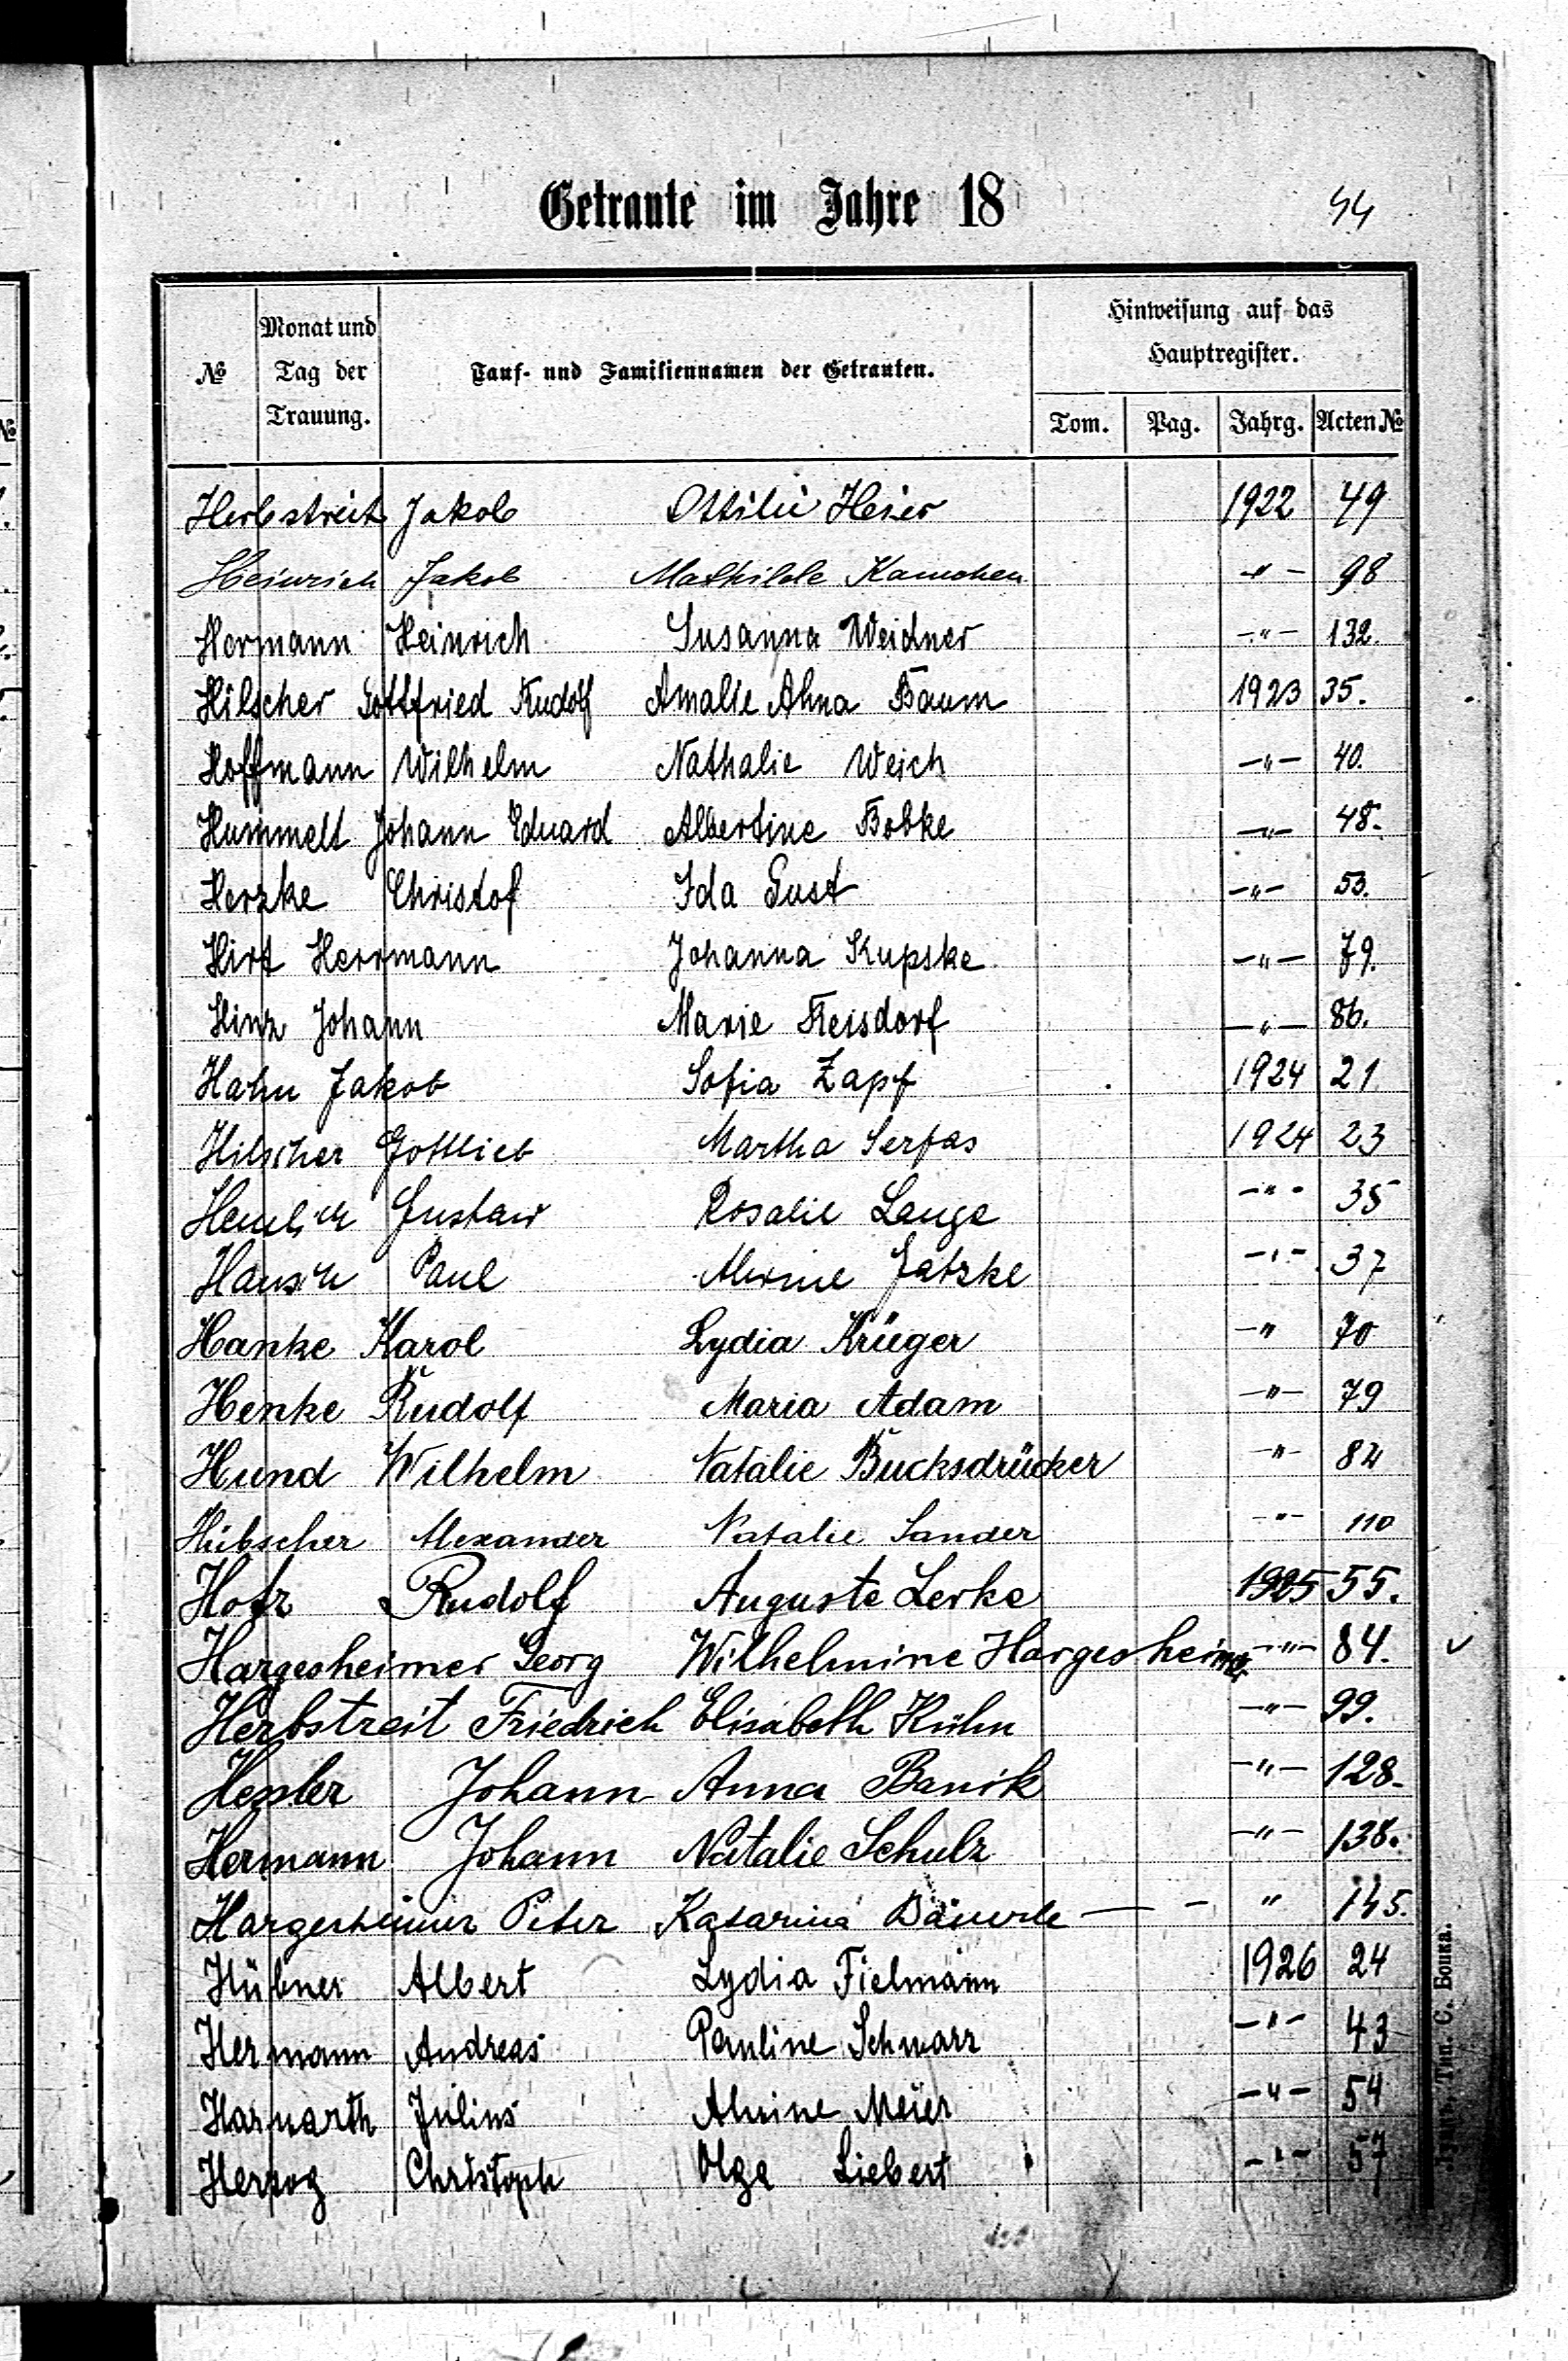 Getraute im Jahre 18 44
№ Monat und Tag der Trauung. Tauf- und Familiennamen der Getrauten. Hinweisung auf das Hauptregister.
Tom. Pag. Jahrg. Acten №
Herbstreit Jakob Ottilie Heier 1922 49
Heinrich Jakob Mathilde Kamchen -"- 98
Hermann Heinrich Susanna Weidner -"- 132.
Hilscher Gottfried Rudolf Amalie Alma Baum 1923 35.
Hoffmann Wilhelm Nathalie Weich -"- 40.
Hummelt Johann Eduard Albertine Bobke -"- 48.
Herzke Christof Ida Gust -"- 53.
Hirt Herrmann Johanna Kupske -"- 79.
Hinz Johann Marie Reisdorf -"- 86.
Hahn Jakob Sofia Zapf 1924 21
Hilscher Gottlieb Martha Serfas 1924 23
Gustaw Rosalie Lange -"- 35
Paul Jatzke -"- 37
Hanke Karol Lydia Krüger -"- 70
Henke Rudolf Maria Adam -"- 79
Hund Wilhelm Natalie Bucksdrücker -"- 82
Hübscher Alexander Natalie Sander -"- 110
Hotz Rudolf Auguste Lerke 1925 55.
Hargesheimer Georg Wilhelmine Hargesheimer -"- 84.
Herbstreit Friedrich Elisabeth Kühn -"- 99.
Hessler Johann Anna Banik -"- 128.
Hermann Johann Natalie Schulz -"- 138.
Hargesheimer Peter Katarina Bäuerle — - " 145.
Hübner Albert Lydia Fielmann 1926 24
Hermann Andreas Pauline Schwarz -"- 43
Harwarth Julius Alwine Meier -"- 54
Herzog Christoph Olga Liebert -"- 57
Тип. С. Бошка.